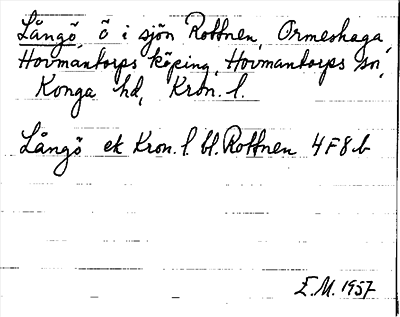 Långö, ö i sjön Rottnen, Ormeshaga,
Hovmantorps köping, Hovmantorps sn,
Konga hd, Kron. l.
Långö ek Kron. l. bl. Rottnen 4F8b
E.M. 1957